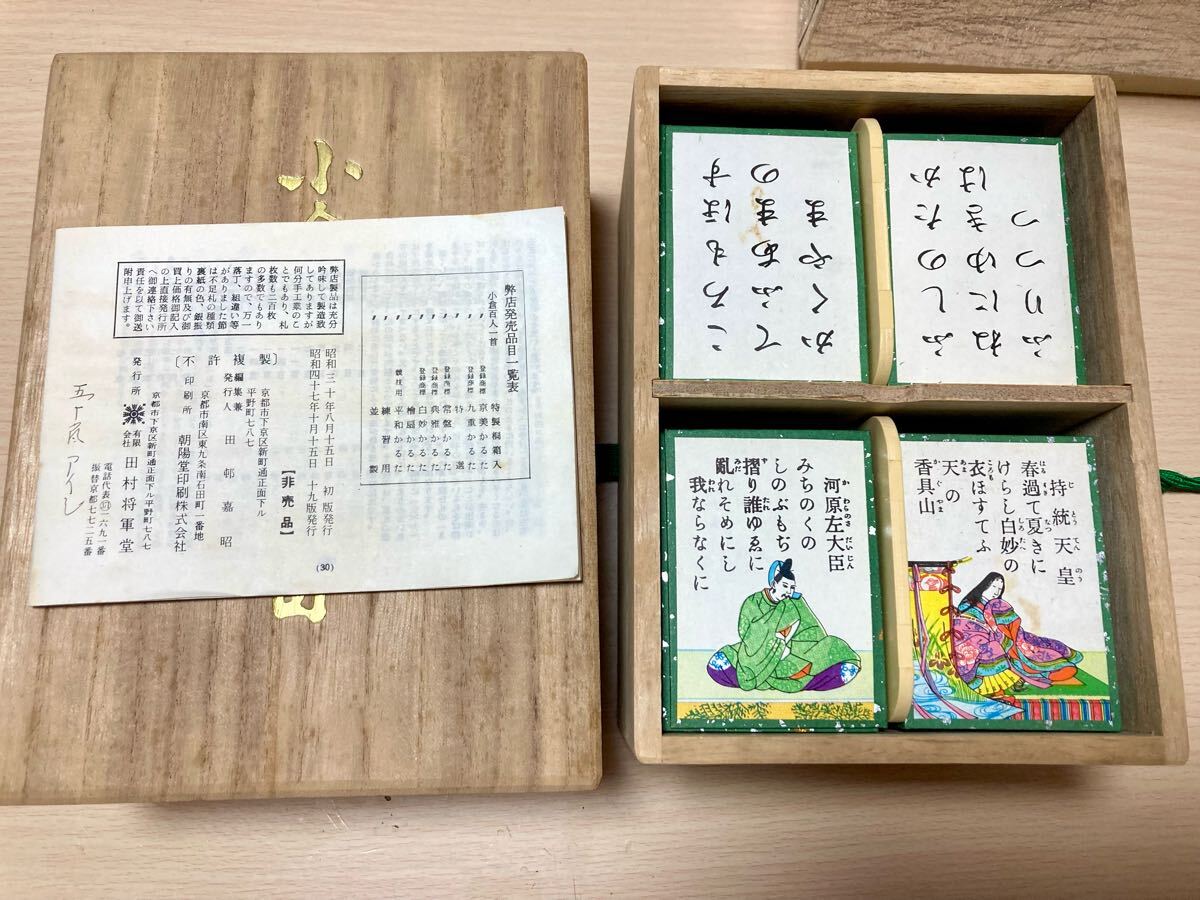 小
弊店発売品目一覧表
小倉百人一首
〃 特製桐箱入
〃 登録商標 京美かるた
〃 登録商標 九重かるた
〃 特選
〃 登録商標 常盤かるた
〃 登録商標 典雅かるた
〃 登録商標 白妙かるた
〃 檜扇かるた
〃 競技用 平和かるた
〃 練習用
〃 並製
弊店製品は充分
吟味して製造致
してありますが
何分手工業のこ
とでもあり、札
枚数も二百枚
の多数でもあり
ますので、万一
落丁、組違い等
がありました節
は不足札の種類
裏紙の色、銀振
りの有無及び御
買上価格御記入
の上直接発行所
へ御連絡下さい
責任を以て御送
附申上げます。
昭和三十年八月十五日 初版発行
昭和四十七年十月十五日 十九版発行
【非売品】
〔不許複製〕
京都市下京区新町通正面下ル
平野町七八七
編集兼発行人 田邨嘉昭
京都市南区東九条南石田町一番地
印刷所 朝陽堂印刷株式会社
京都市下京区新町通正面下ル平野町七八七
発行所 有限会社 田村将軍堂
電話代表㊲一二六九一番
振替京都七七二五番
(30)
五十嵐
ふしのたか
ねにゆきは
ふりつつ
ころもほす
てふあまの
かくやま
持統天皇
じとうてんのう
春過て夏きに
はるすぎ なつ
けらし白妙の
しろたへ
衣ほすてふ
ころも
天の
あま
香具山
かぐやま
河原左大臣
かわらのさだいじん
みちのくの
しのぶもぢ
摺り誰ゆゑに
ず たれ
亂れそめにし
みだ
我ならなくに
われ